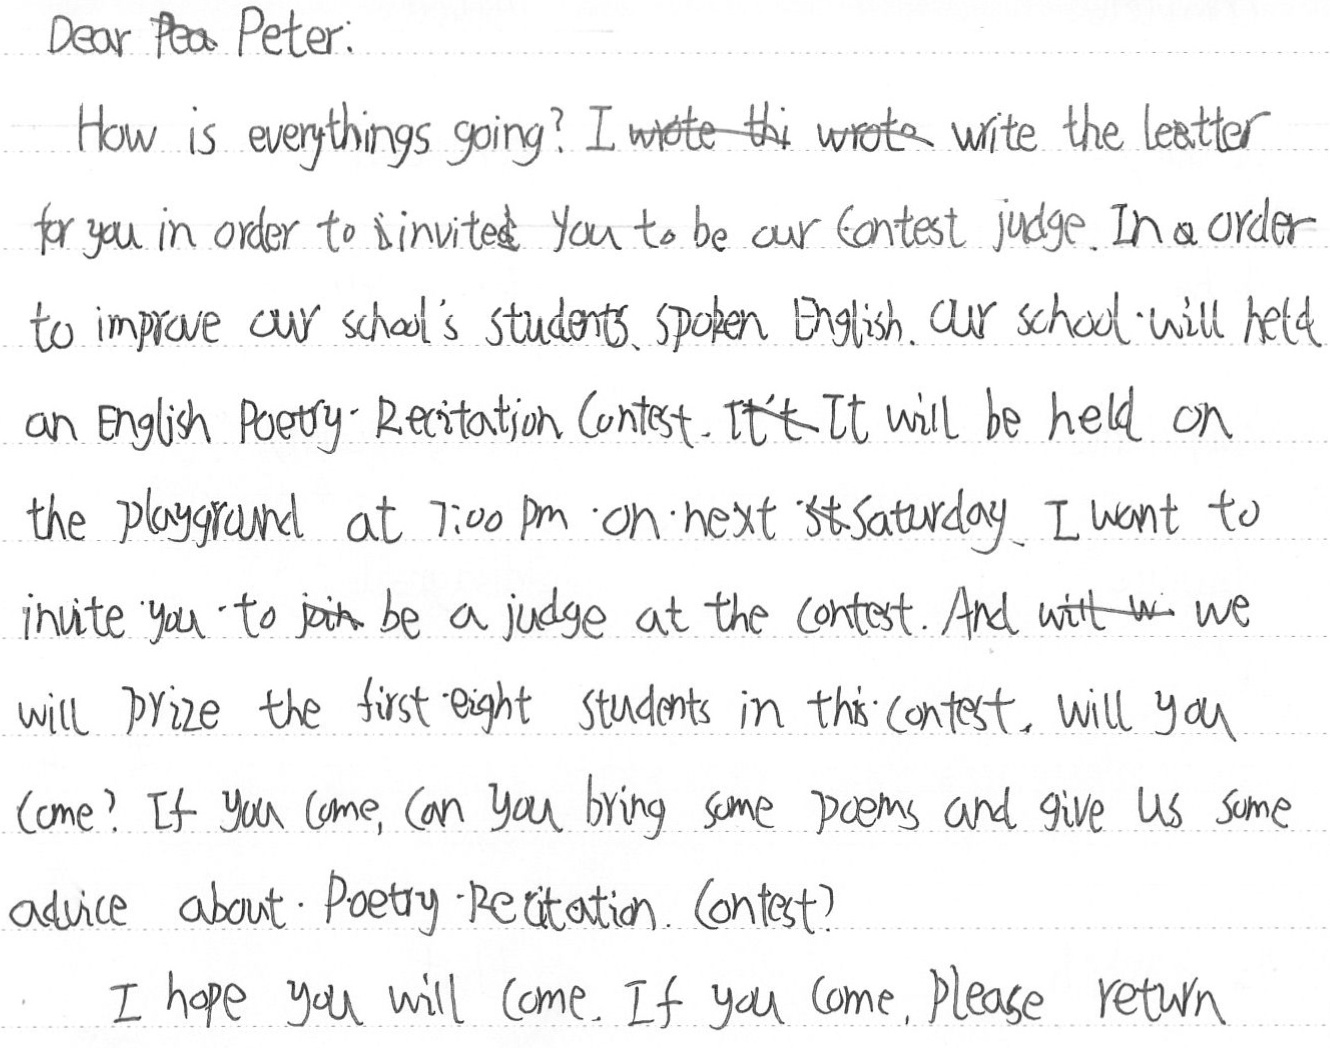 Dear Peter:
How is everythings going? I write the leatter
for you in order to invite you to be our Contest judge. In order
to improve our school's students spoken English. Our school will held
an English Poetry Recitation Contest. It will be held on
the playground at 7:00 pm on next Saturday. I want to
invite you to be a judge at the contest. And we
will prize the first eight students in this contest. will you
come? If you come, can you bring some poems and give us some
advice about Poetry Recitation Contest?
I hope you will come. If you come, please return